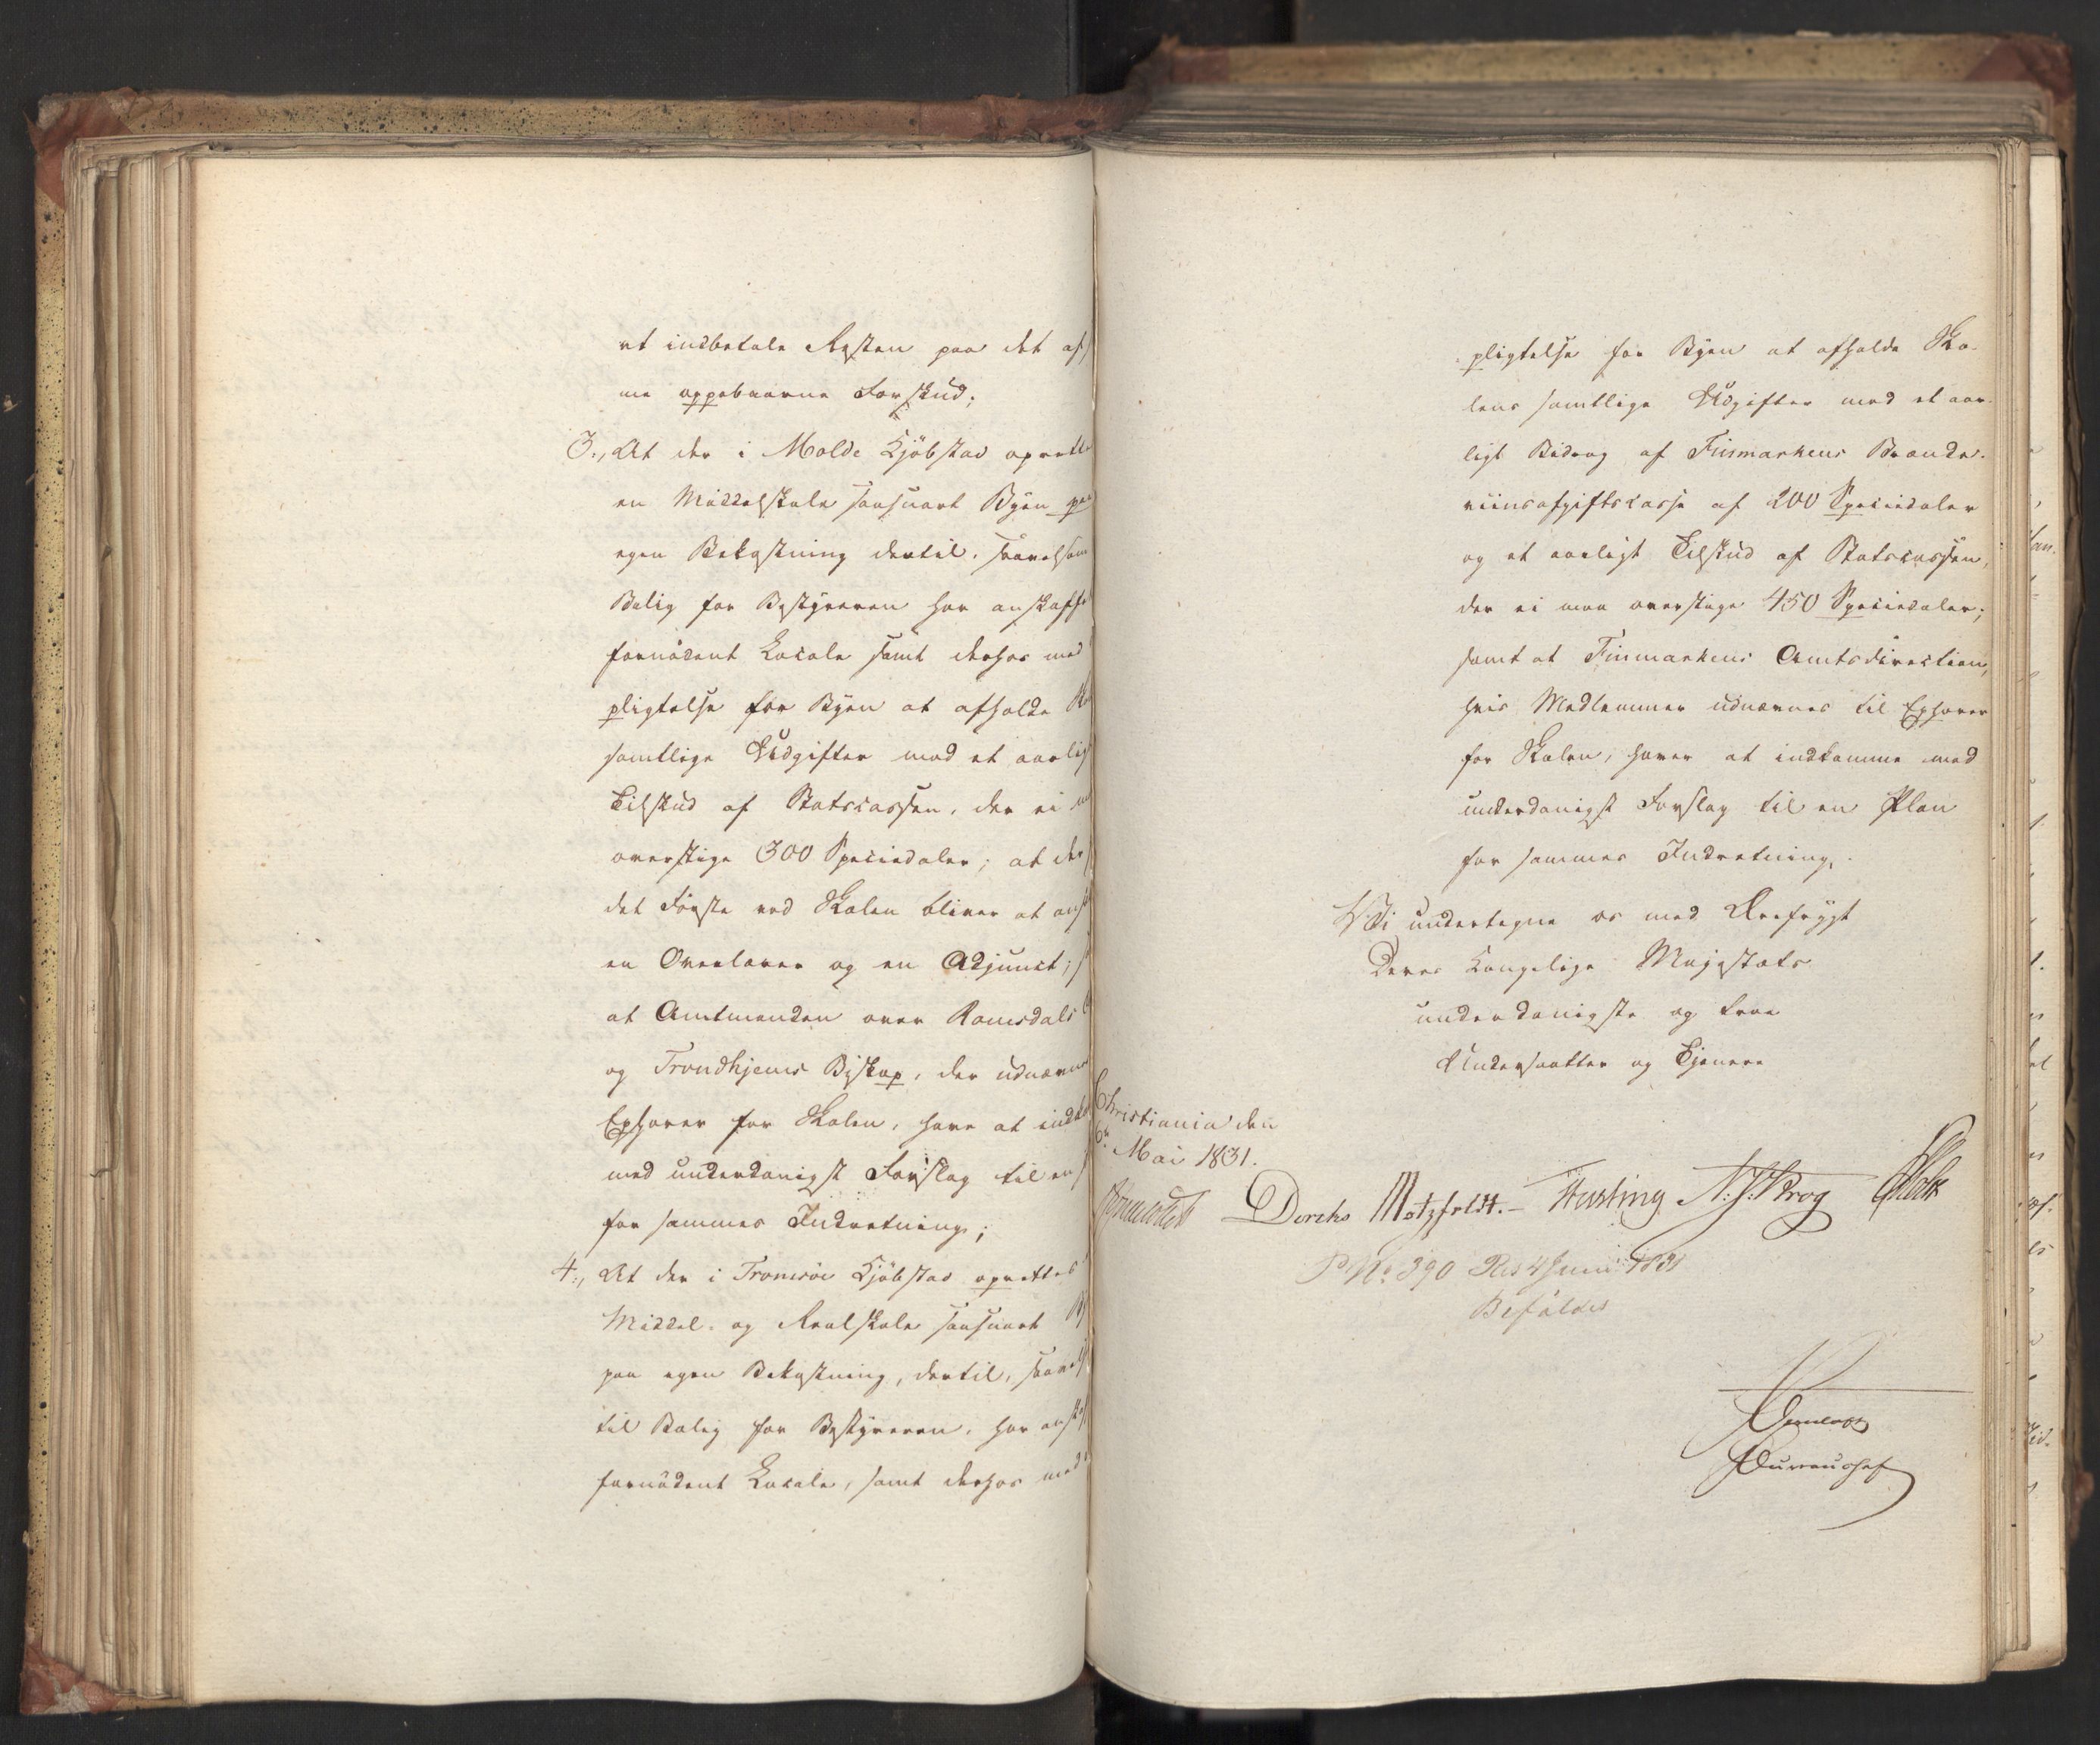 at indbetale Resten paa det af
me oppebaarne Forskud;
3., At der i Molde Kjöbstad oprette
en Middelskole saasnart Byen paa
egen Bekostning dertil, saavelsom
Bolig for Bestyreren har anskaffe
fornödent Locale samt derhos med
pligtelse for Byen at afholde Sko
samtlige Udgifter mod et aarlig
Tilskud af Statscassen, der ei maa
overstige 300 Speciedaler; at der
det Förste ved Skolen bliver at ans
en Overlærer og en Adjunct; s
at Amtmanden over Romsdals A
og Trondhjems Biskop, der udnævnes
Ephorer for Skolen, have at indko
med underdanigst Forslag til en
for sammes Indretning;
4., At der i Tromsöe Kjöbstad oprettes
Middel- og Realskole saasnart By
paa egen Bekostning, dertil, saavels
til Bolig for Bestyreren, har anskaf
fornödent Locale, samt derhos med
pligtelse for Byen at afholde Sko-
lens samtlige Udgifter mod et aar-
ligt Bidrag af Finmarkens Brænde-
viinsafgiftscasse af 200 Speciedaler
og et aarligt Tilskud af Statscassen,
der ei maa overstige 450 Speciedaler;
samt at Finmarkens Amtsdirection,
hvis Medlemmer udnævnes til Ephorer
for Skolen, haver at indkomme med
underdanigst Forslag til en Plan
for sammes Indretning.
Vi undertegne os med Ærefrygt
Deres Kongelige Majestæts
underdanigste og troe
Undersaatter og Tjenere
Christiania den
6te Mai 1831.
Diriks Motzfeldt.- Hersting N. J. Krog Holst
P No. 390 Res 4 Juni 1831
Bifaldes
Bureauchef